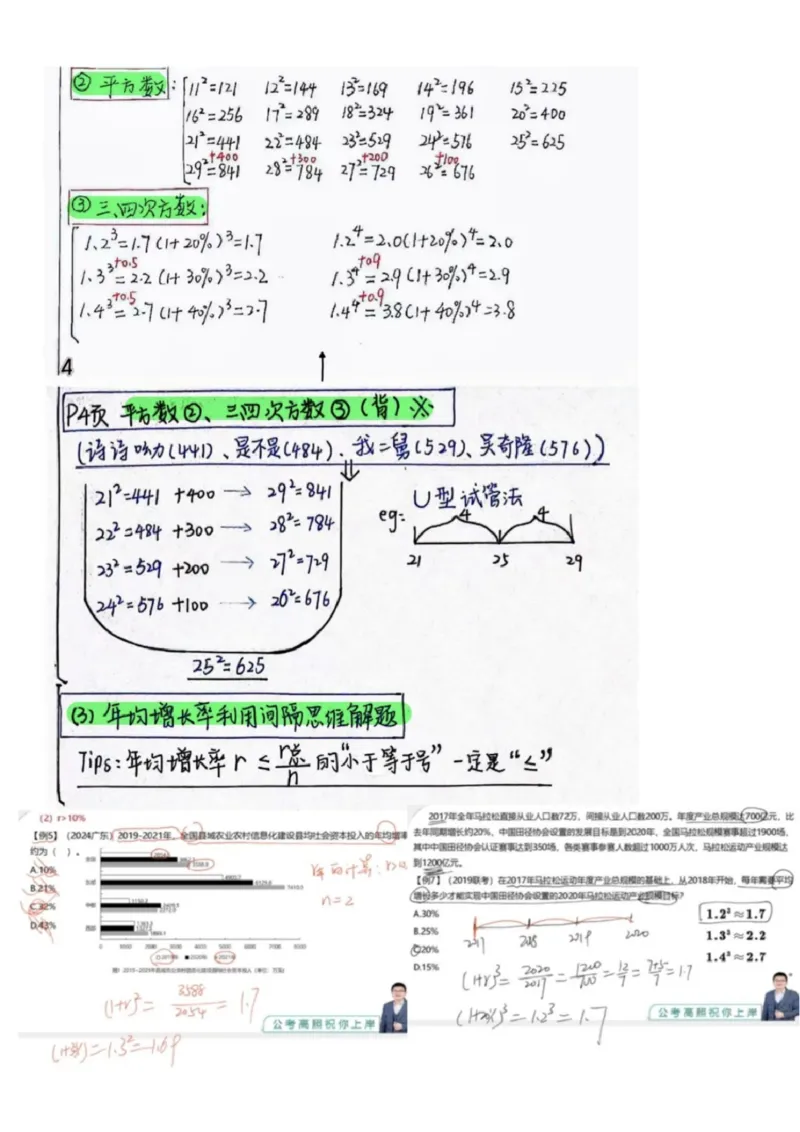 ② 平方数: 11²=121 12²=144 13²=169 14²=196 15²=225
16²=256 17²=289 18²=324 19²=361 20²=400
21²=441 22²=484 23²=529 24²=576 25²=625
+400 +300 +200 +100
29²=841 28²=784 27²=729 26²=676
③ 三、四次方数:
1.2³=1.7 (1+20%)³=1.7 1.2⁴=2.0 (1+20%)⁴=2.0
+0.5 +0.9
1.3³=2.2 (1+30%)³=2.2 1.3⁴=2.9 (1+30%)⁴=2.9
+0.5 +0.9
1.4³=2.7 (1+40%)³=2.7 1.4⁴=3.8 (1+40%)⁴=3.8
4
P4页 平方数②、三四次方数③(背)※
(诗诗吩力(441)、是不是(484)、我二舅(529)、吴奇隆(576))
21²=441 +400 → 29²=841
22²=484 +300 → 28²=784
23²=529 +200 → 27²=729
24²=576 +100 → 26²=676
25²=625
eg: U型试管法
4 4
21 25 29
(3) 年均增长率利用间隔思维解题
Tips:年均增长率 r ≤ r总/n 的“小于等于号”一定是“≤”
(2) r>10%
【例5】(2024广东)2019-2021年,全国县域农业农村信息化建设县均社会资本投入的年均增
约为( )。
A.10%
B.21%
C.32%
D.43%
全国
东部
中部
西部
0 1000 2000 3000 4000 5000 6000 7000 8000
2019年 2020年 2021年
n=2
(1+r)²= 3588/2054 = 1.7
=1.3²=1.69
公考高照祝你上岸
2017年全年马拉松直接从业人口数72万,间接从业人口数200万。年度产业总规模达700亿元,比
去年同期增长约20%,中国田径协会设置的发展目标是到2020年,全国马拉松规模赛事超过1900场,
其中中国田径协会认证赛事达到350场,各类赛事参赛人数超过1000万人次,马拉松运动产业规模达
到1200亿元。
【例7】(2019联考)在2017年马拉松运动年度产业总规模的基础上,从2018年开始,每年需要平均
增长多少才能实现中国田径协会设置的2020年马拉松运动产业规模目标?
A.30%
B.25%
C.20%
D.15%
1.2³≈1.7
1.3³≈2.2
1.4³≈2.7
2017 2018 2019 2020
(1+r)³= 2020/2017 = 1200/700 = 12/7 = 7+5/7 = 1.7
=1.2³=1.7
公考高照祝你上岸